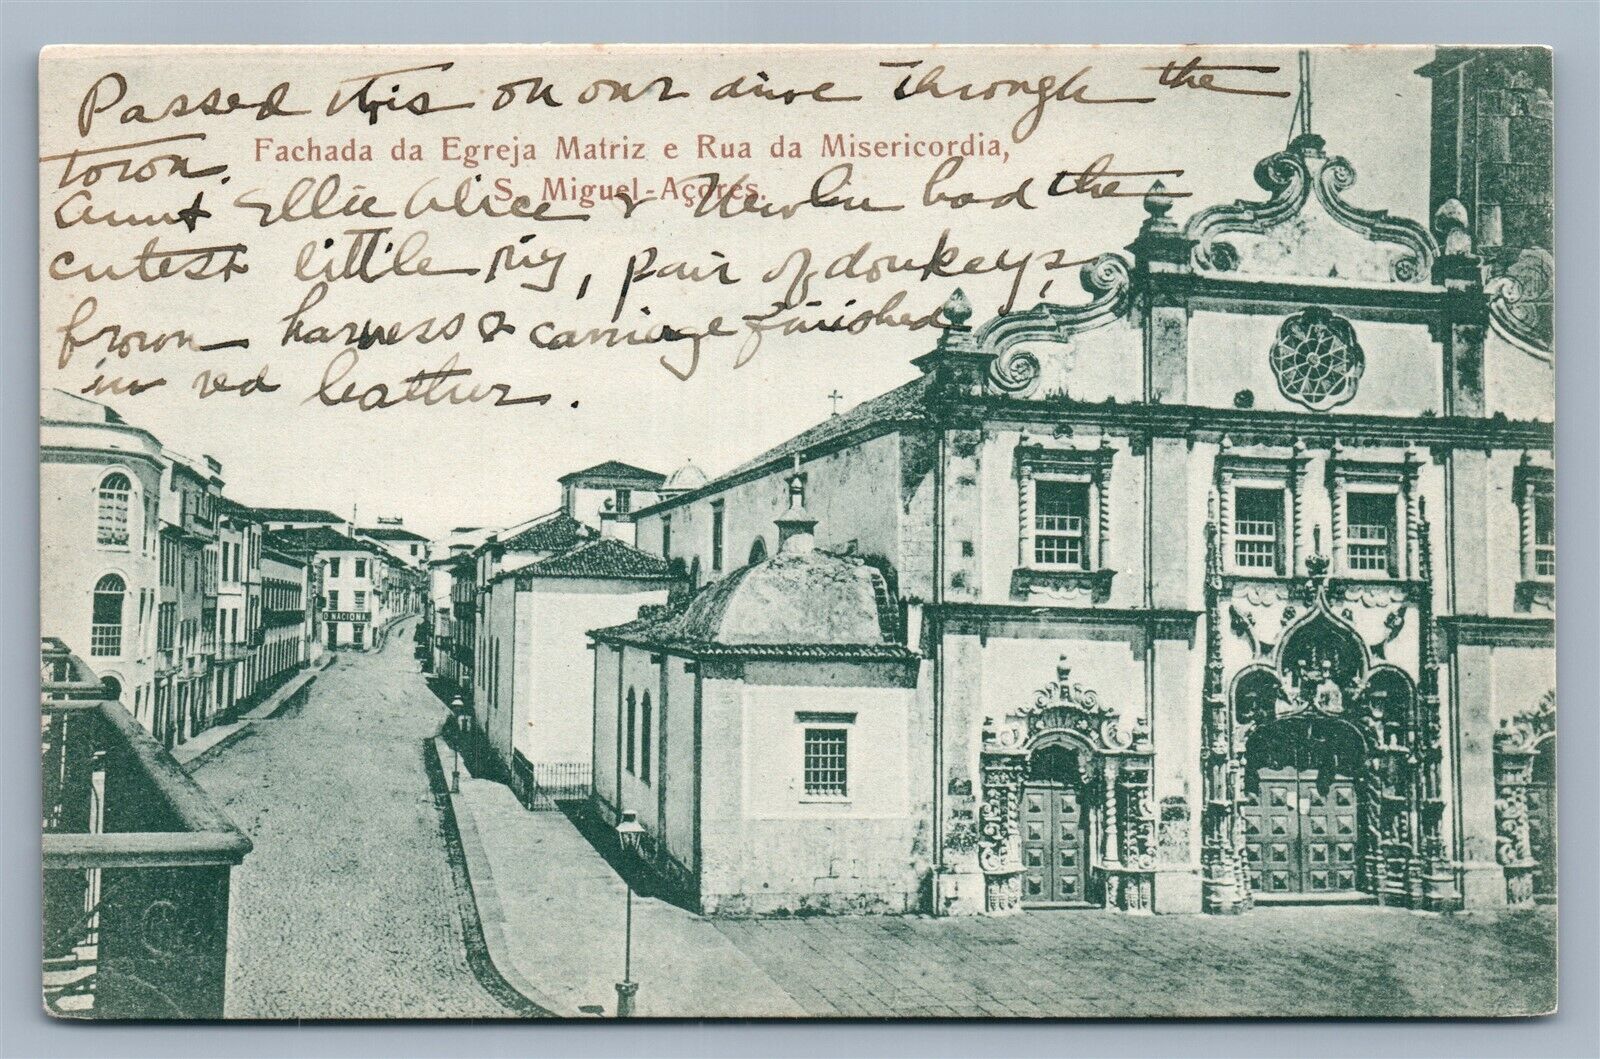 Passed this on our drive through the
town.
Fachada da Egreja Matriz e Rua da Misericordia,
S. Miguel-Açores.
Aunt Ellie Alice & had the
cutest little rig, pair of donkeys,
brown harness & carriage finished
in red leather.
O NACIONA